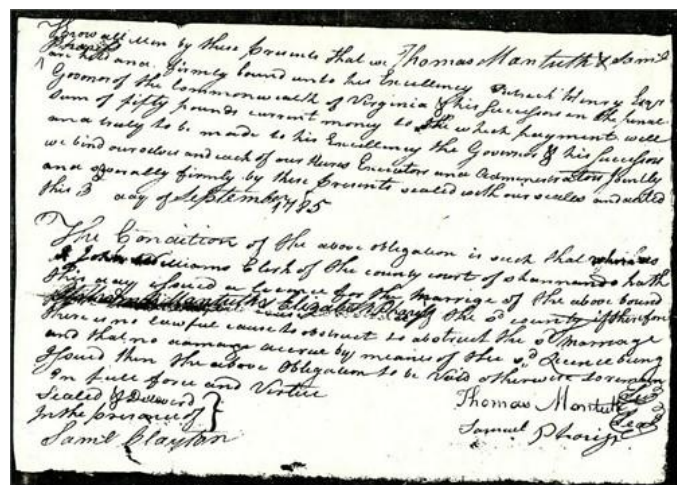 Know all Men by these Presents that we Thomas Mantuth & Saml
are held and firmly bound unto his Excellency Patrick Henry Esqr
Governor of the Commonwealth of Virginia & his Successors in the penal
sum of fifty pounds current money to the which payment well
and truly to be made to his Excellency the Governor & his Successors
we bind ourselves and each of our Heirs Executors and Administrators Jointly
and severally firmly by these Presents sealed with our seales and dated
this 3d day of September 1785
The Condition of the above obligation is such that whereas
John Williams Clerk of the county court of Shannando hath
this day issued a licence for the Marrige of the above bound
Mantuth & Elizabeth the sd county if therefore
there is no lawful cause to obstruct the sd Marriage
and that no damage accrue by means of the sd Licence being
Issued then the above Obligation to be Void otherwise to remain
in full force and Virtue
Sealed & Delivered
In the presence of
Saml Clayton
Thomas Mantuth Seal
Samuel Seal